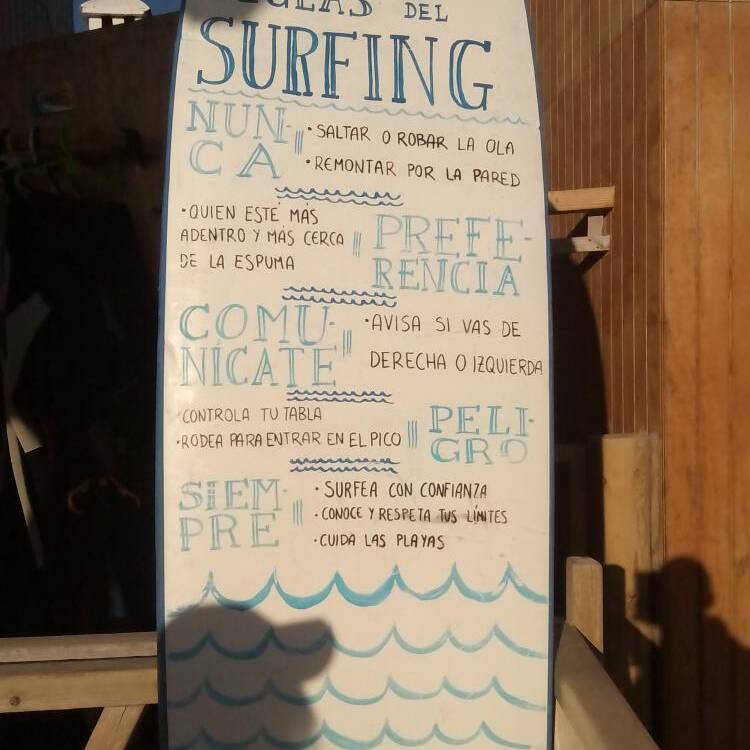 REGLAS DEL
SURFING
NUN-
CA
• SALTAR O ROBAR LA OLA
• REMONTAR POR LA PARED
• QUIEN ESTÉ MÁS
ADENTRO Y MÁS CERCA
DE LA ESPUMA
PREFE-
RENCIA
COMU-
NÍCATE
• AVISA SI VAS DE
DERECHA O IZQUIERDA
CONTROLA TU TABLA
• RODEA PARA ENTRAR EN EL PICO
PELI-
GRO
SIEM-
PRE
• SURFEA CON CONFIANZA
• CONOCE Y RESPETA TUS LÍMITES
• CUIDA LAS PLAYAS